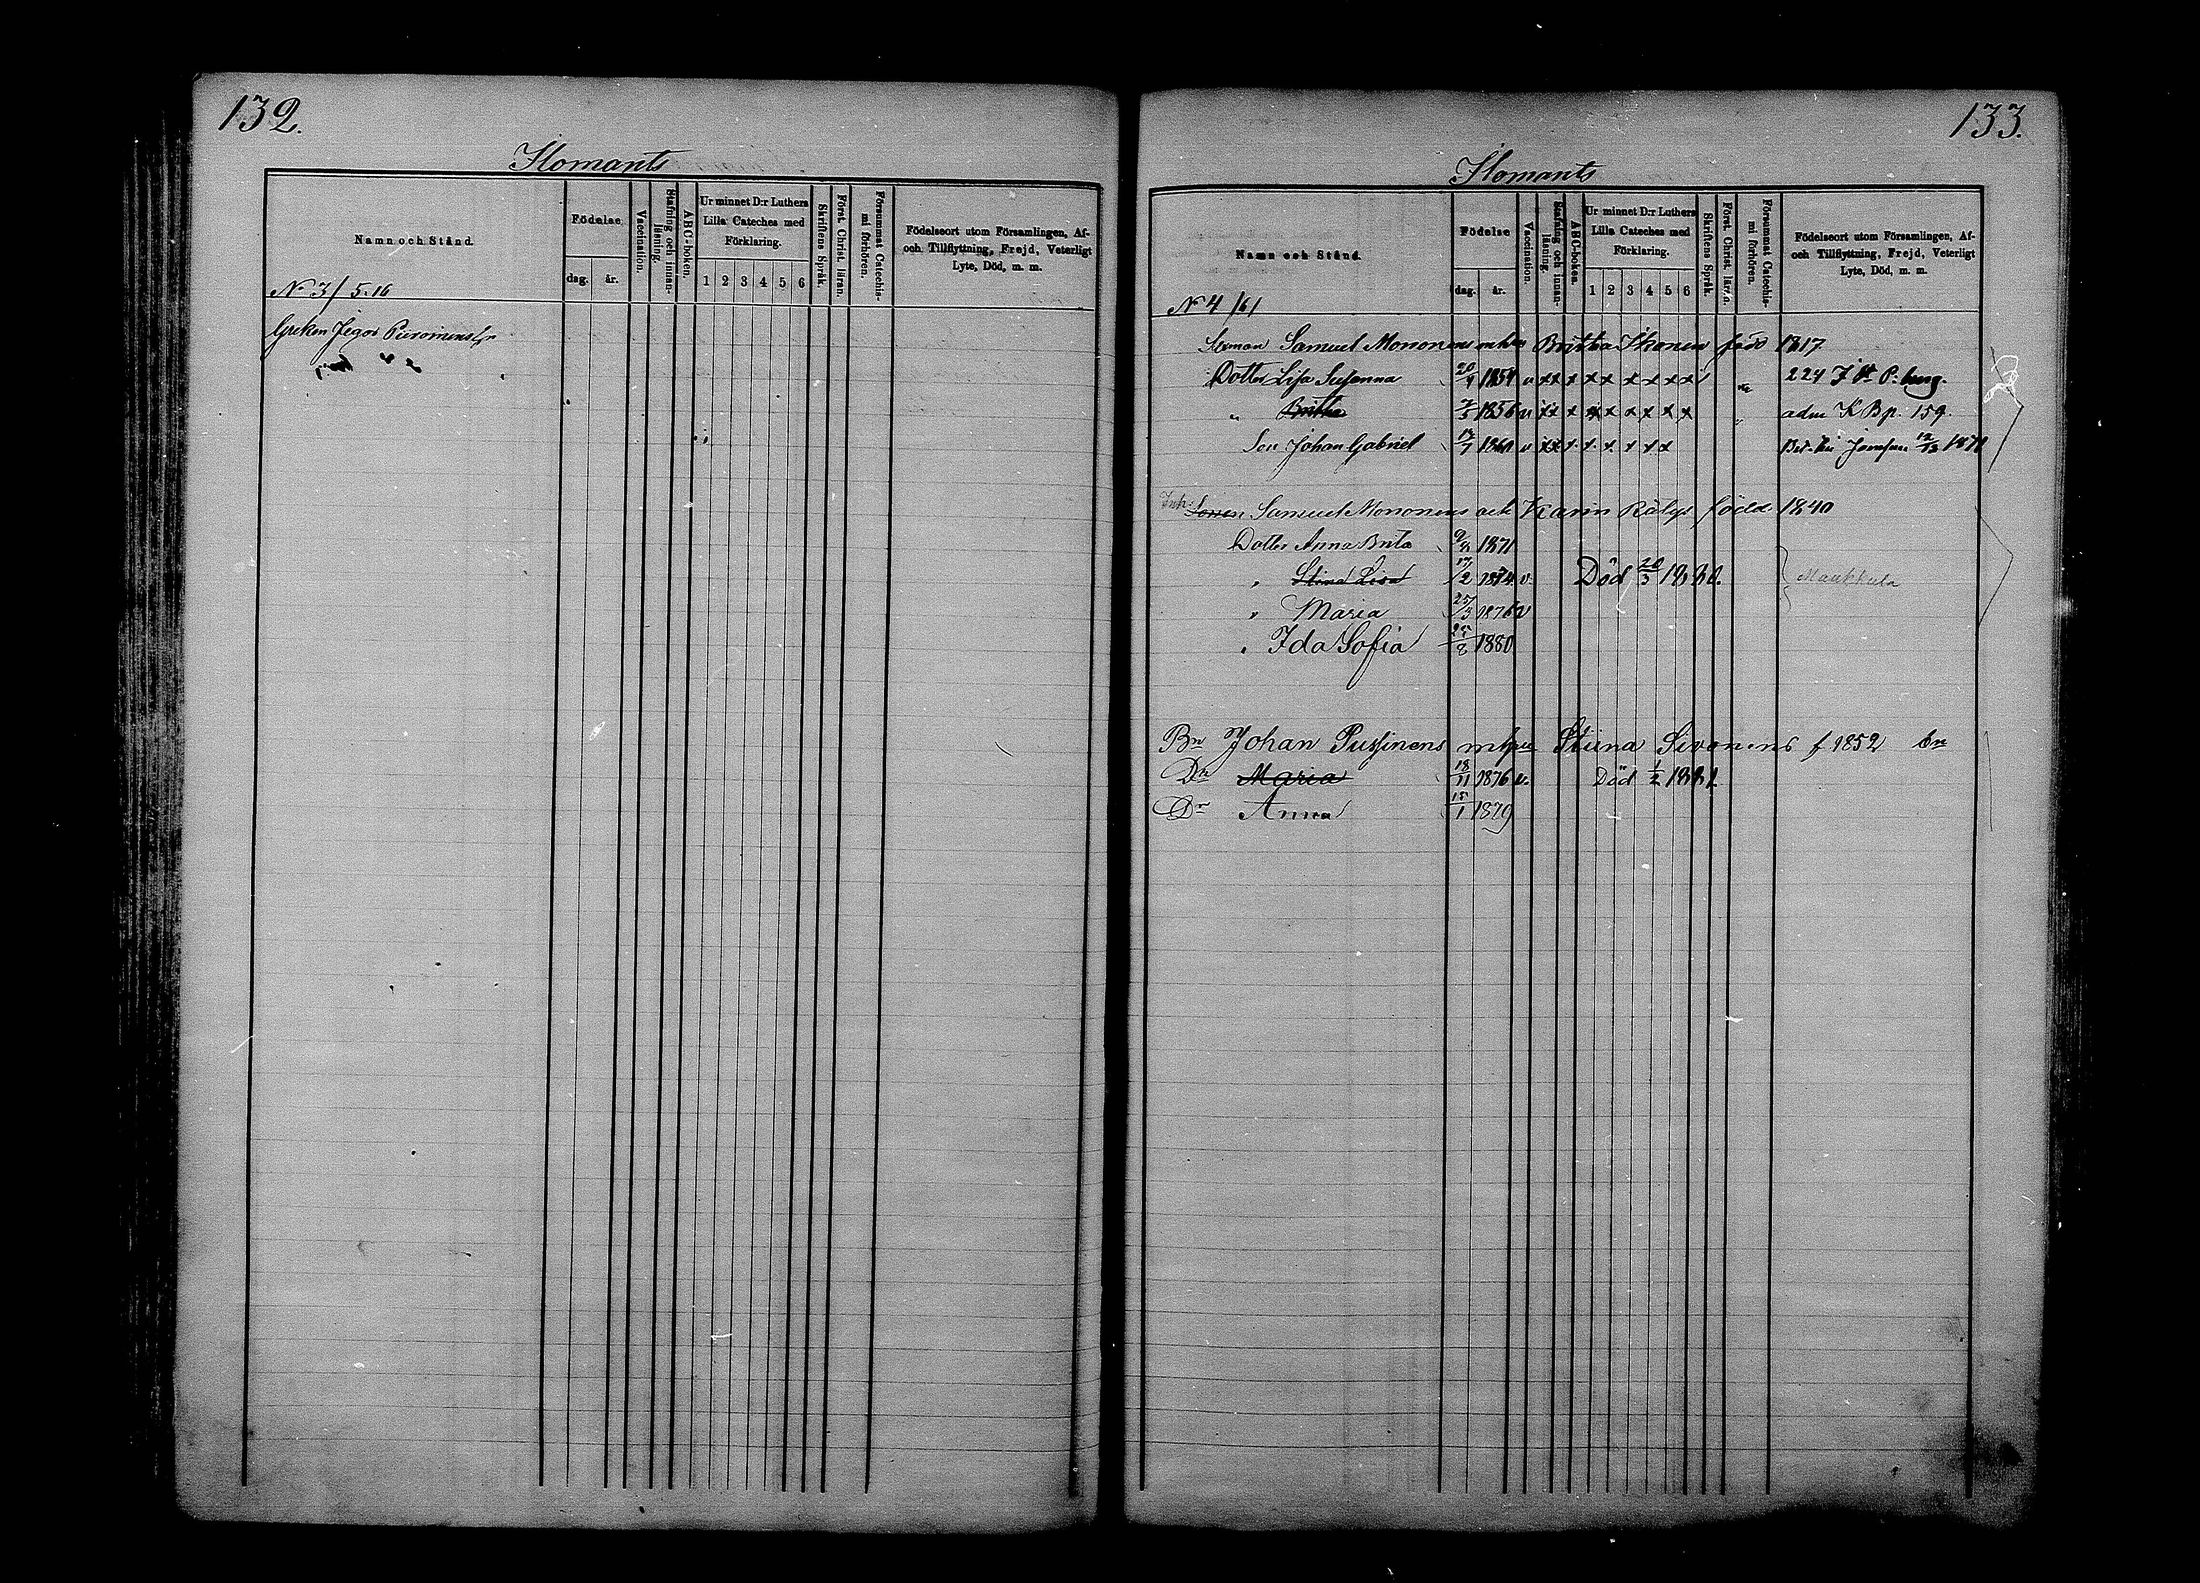 132.
Ilomants
Namn och Stånd.
Födelse
dag. år.
Vaccination.
Stafning och innan-
läsning.
ABC-boken.
Ur minnet D:r Luthers
Lilla Cateches med
Förklaring.
1 2 3 4 5 6
Skriftens Språk.
Först. Christ. läran.
Försummat Catechis-
mi förhören.
Födelseort utom Församlingen, Af-
och Tillflyttning, Frejd, Veterligt
Lyte, Död, m. m.
No 3/ 5.16
Greken Jegor
133.
Ilomants
Namn och Stånd.
Födelse
dag. år.
Vaccination.
Stafning och innan-
läsning.
ABC-boken.
Ur minnet D:r Luthers
Lilla Cateches med
Förklaring.
1 2 3 4 5 6
Skriftens Språk.
Först. Christ. läran.
Försummat Catechis-
mi förhören.
Födelseort utom Församlingen, Af-
och Tillflyttning, Frejd, Veterligt
Lyte, Död, m. m.
No 4 /61
Samuel Mononens Britha Ikonen född 1817
Dotter Lisa Susanna 20/9 1854 v x x x x x x x x x 224 I St P:burg.
" Britha 7/5 1856 v x x x x x x x x x " adm K Bp. 159.
Son Johan Gabriel 17/7 1860 v x x x x x x x x
Inh: Sonen Samuel Mononens och Karin född 1840
Dotter Anna Brita 9/8 1871
" Stina Lisa 17/2 1874 v. Död 20/3 1880. Maukkula
" Maria 25/3 1876 v
" Ida Sofia 25/8 1880
Bn Johan Pussinens mhu Stina Sivonens f 1852
Dr Maria 18/11 1876 v. Död 1/2 1881
Dr Anna 15/1 1879